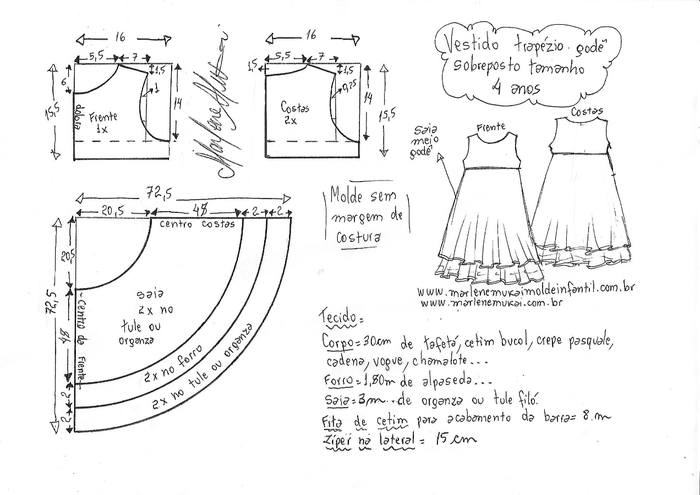 16
5,5
7
1,5
6
1
15,5
14
dobra
Frente
1x
16
5,5
7
1,5
1,5
0,75
14
15,5
Costas
2x
Vestido trapézio-godê
sobreposto tamanho
4 anos
Frente
Costas
Saia
meio
godê
72,5
20,5
48
2
2
centro costas
20,5
72,5
48
2
2
centro da Frente
saia
2x no
tule ou
organza
2x no forro
2x no tule ou organza
Molde sem
margem de
costura
www.marlenemukaimoldeinfantil.com.br
www.marlenemukai.com.br
Tecido=
Corpo=30cm de tafetá, cetim bucol, crepe pasquale,
cadena, vogue, chamalote...
Forro=1,80m de alpaseda...
Saia=3m.. de organza ou tule filó.
Fita de cetim para acabamento da barra= 8.m
Ziper na lateral= 15 cm